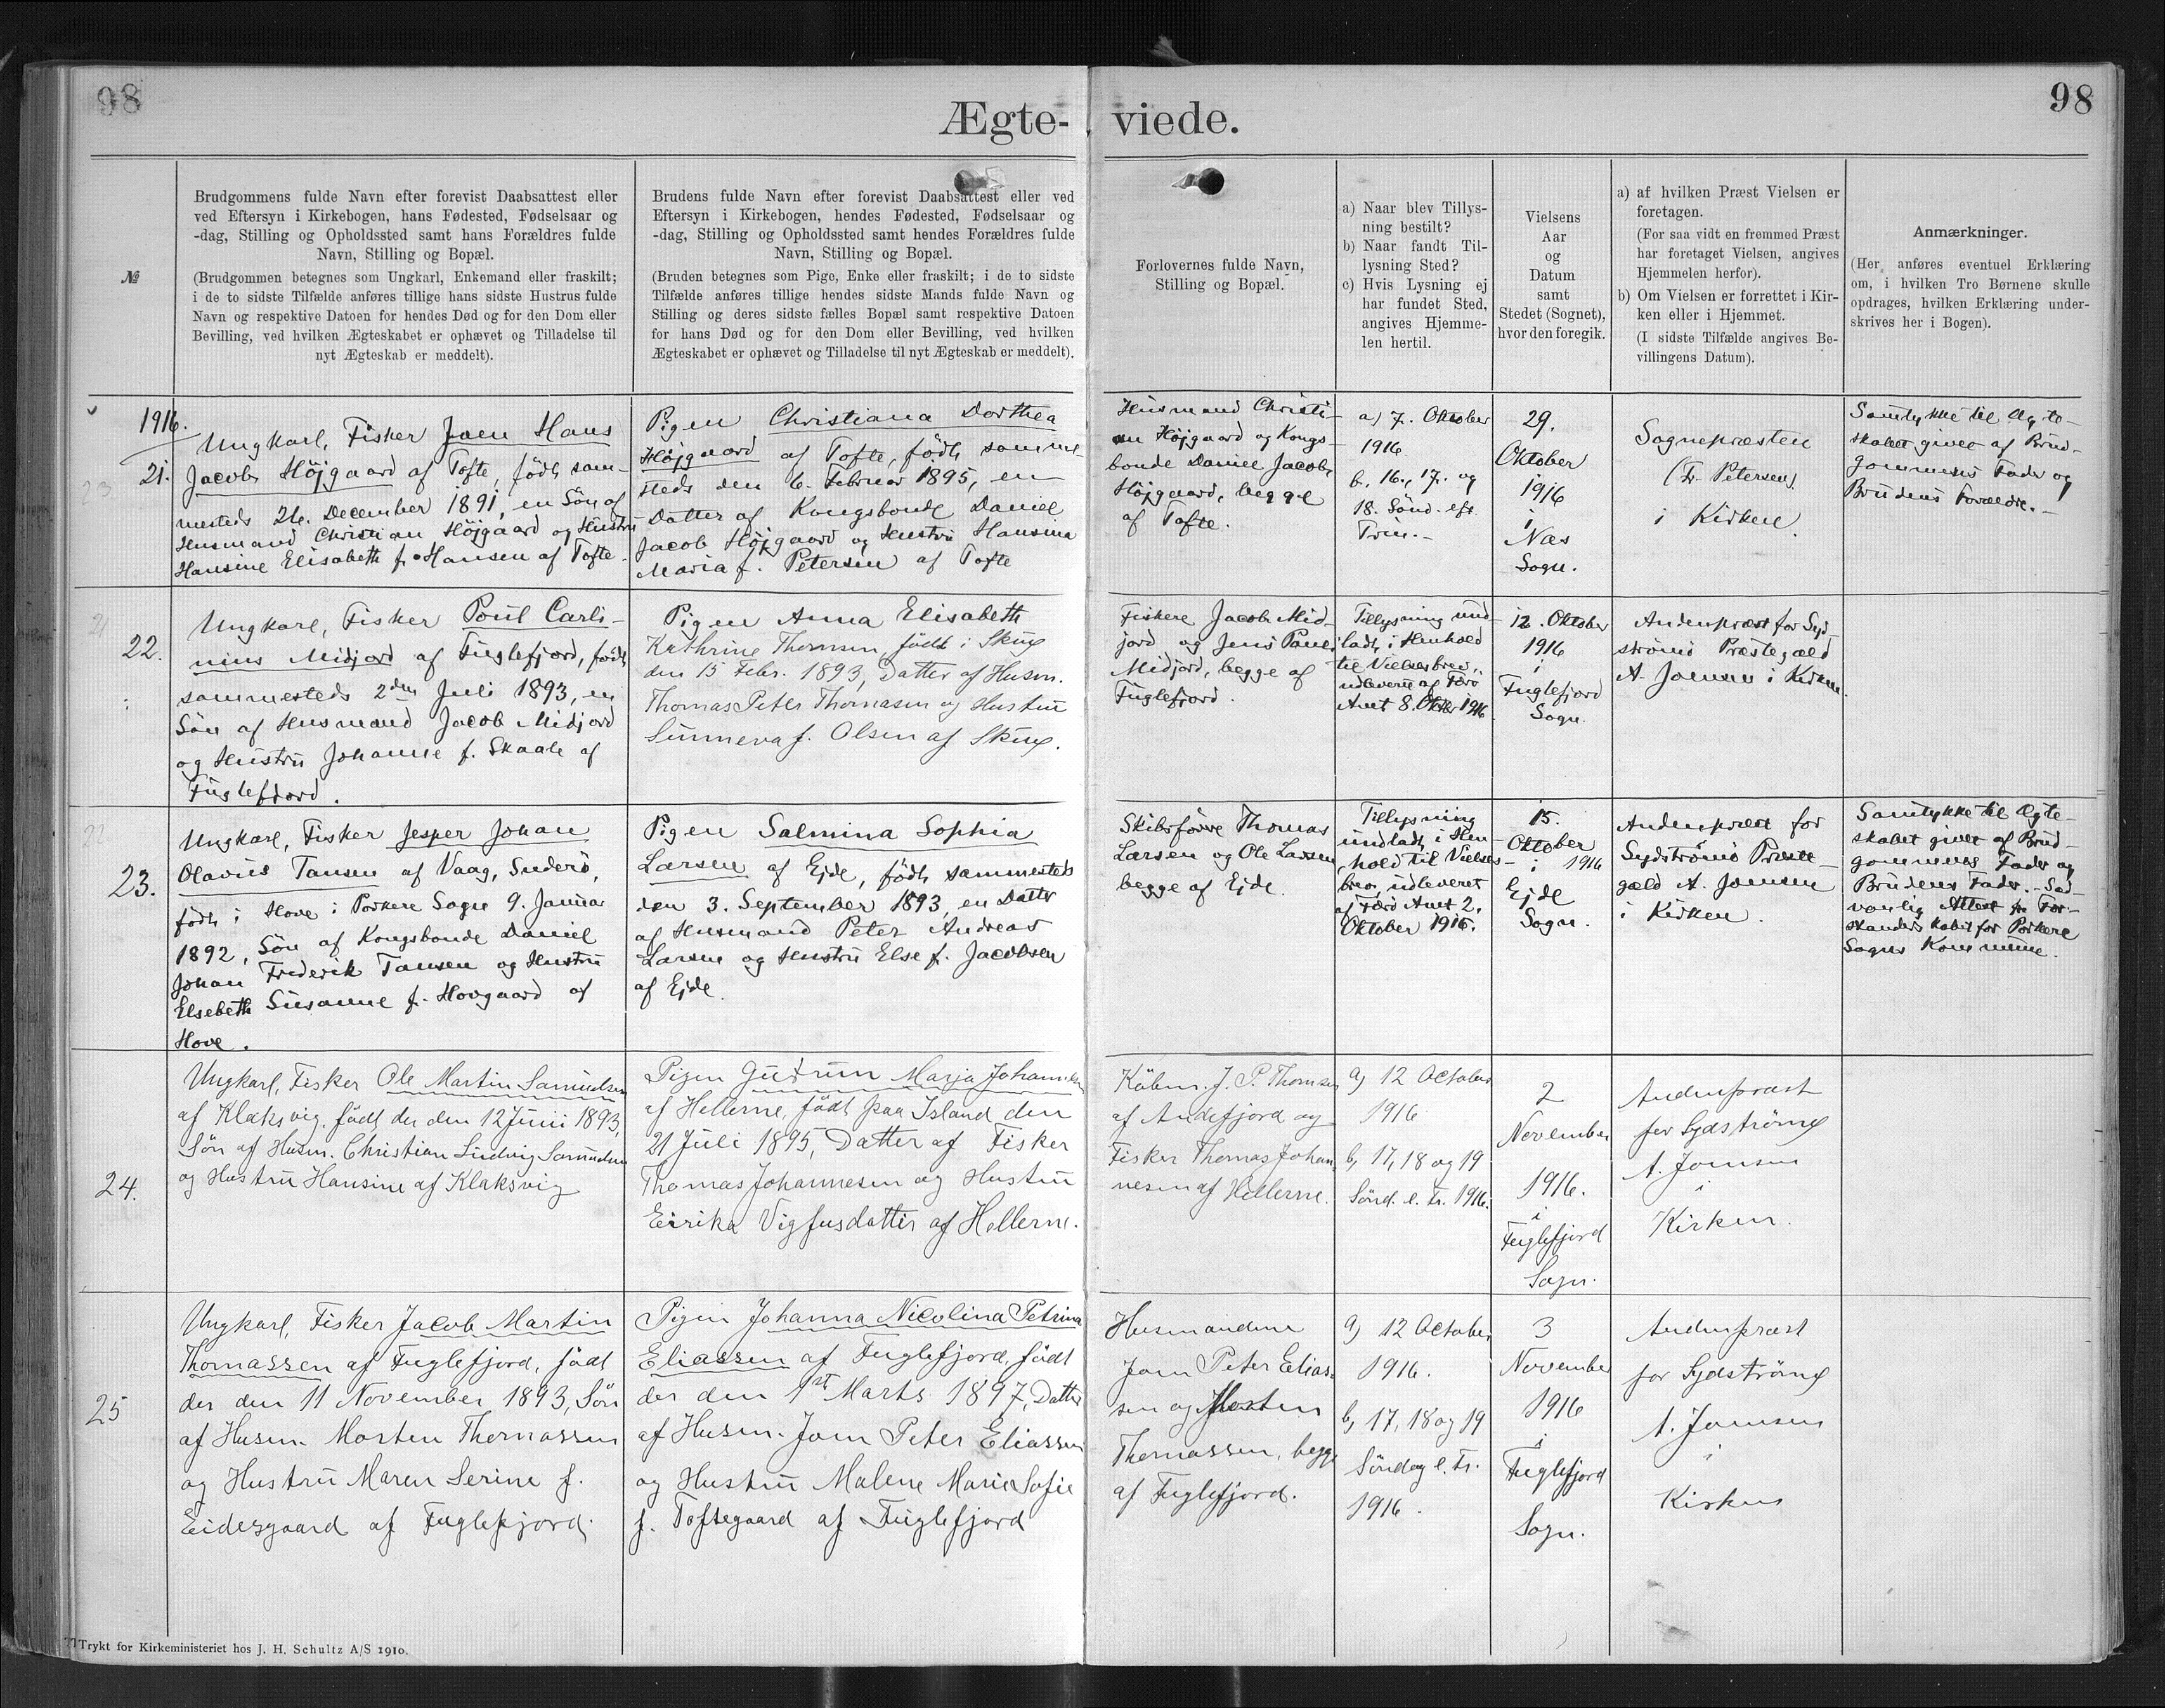 98
98
Ægte-viede.
№
Brudgommens fulde Navn efter forevist Daabsattest eller
ved Eftersyn i Kirkebogen, hans Fødested, Fødselsaar og
-dag, Stilling og Opholdssted samt hans Forældres fulde
Navn, Stilling og Bopæl.
(Brudgommen betegnes som Ungkarl, Enkemand eller fraskilt;
i de to sidste Tilfælde anføres tillige hans sidste Hustrus fulde
Navn og respektive Datoen for hendes Død og for den Dom eller
Bevilling, ved hvilken Ægteskabet er ophævet og Tilladelse til
nyt Ægteskab er meddelt).
Brudens fulde Navn efter forevist Daabsattest eller ved
Eftersyn i Kirkebogen, hendes Fødested, Fødselsaar og
-dag, Stilling og Opholdssted samt hendes Forældres fulde
Navn, Stilling og Bopæl.
(Bruden betegnes som Pige, Enke eller fraskilt; i de to sidste
Tilfælde anføres tillige hendes sidste Mands fulde Navn og
Stilling og deres sidste fælles Bopæl samt respektive Datoen
for hans Død og for den Dom eller Bevilling, ved hvilken
Ægteskabet er ophævet og Tilladelse til nyt Ægteskab er meddelt).
Forlovernes fulde Navn,
Stilling og Bopæl.
a) Naar blev Tillys-
ning bestilt?
b) Naar fandt Til-
lysning Sted?
c) Hvis Lysning ej
har fundet Sted,
angives Hjemme-
len hertil.
Vielsens
Aar
og
Datum
samt
Stedet (Sognet),
hvor den foregik.
a) af hvilken Præst Vielsen er
foretagen.
(For saa vidt en fremmed Præst
har foretaget Vielsen, angives
Hjemmelen herfor).
b) Om Vielsen er forrettet i Kir-
ken eller i Hjemmet.
(I sidste Tilfælde angives Be-
villingens Datum).
Anmærkninger.
(Her anføres eventuel Erklæring
om, i hvilken Tro Børnene skulle
opdrages, hvilken Erklæring under-
skrives her i Bogen).
1916.
21.
Ungkarl, Fisker Joen Hans
Jacob Höjgaard af Tofte, födt sam-
mesteds 26. December 1891, en Sön af
Husmand Christian Höjgaard og Hustru
Hansine Elisabeth f. Hansen af Tofte.
Pigen Christiana Dorthea
Höjgaard af Tofte, födt samme-
steds den 6. Februar 1895, en
Datter af Kongsbonde Daniel
Jacob Höjgaard og Hustru Hansina
Maria f. Petersen af Tofte
Husmand Christi-
an Höjgaard og Kongs-
bonde Daniel Jacob
Höjgaard, begge
af Tofte.
a) 7. Oktober
1916
b. 16., 17. og
18. Sönd. eft.
Trin.-
29.
Oktober
1916
i
Næs
Sogn.
Sognepræsten
(Fr. Petersen).
i Kirken.
Samtykke til Ægte-
skabet givet af Brud-
gommens Fader og
Brudens Forældre.-
22.
Ungkarl, Fisker Poul Carli-
nius Midjord af Fuglefjord, födt
sammesteds 2den Juli 1893, en
Sön af Husmand Jacob Midjord
og Hustru Johanne f. Skaale af
Fuglefjord.
Pigen Anna Elisabeth
Kathrine Thomsen, födt i Skuø
den 15 Febr. 1893, Datter af Husm.
Thomas Peter Thomasen og Hustru
Sunneva f. Olsen af Skuø.
Fiskere Jacob Mid-
jord og Jens Pauli
Midjord, begge af
Fuglefjord.
Tillysning und-
ladt, i Henhold
til Vielsesbrev,
udleveret af Færø
Amt 8. Oktbr 1916
12. Oktober
1916
i
Fuglefjord
Sogn.
Andenpræst for Syd-
strømø Præstegæld
A. Joensen i Kirken.
23.
Ungkarl, Fisker Jesper Johan
Olavius Tausen af Vaag, Suderö,
födt i Hove i Porkere Sogn 9. Januar
1892, Sön af Kongsbonde Daniel
Johan Frederik Tausen og Hustru
Elsebeth Susanne f. Hovgaard af
Hove.
Pigen Salmina Sophia
Larsen af Ejde, födt sammesteds
den 3. September 1893, en Datter
af Husmand Peter Andreas
Larsen og Hustru Else f. Jacobsen
af Ejde.
Skibsförer Thomas
Larsen og Ole Larsen
begge af Ejde.
Tillysning
undladt, i Hen-
hold til Vielses-
brev, udleveret
af Færö Amt 2.
Oktober 1916.
15.
Oktober
i 1916
Ejde
Sogn.
Andenpræst for
Sydströmö Præste-
gæld A. Joensen
i Kirken.
Samtykke til Ægte-
skabet givet af Brud-
gommens Fader og
Brudens Fader.- Sæd-
vanlig Attest fr. For-
standerskabet for Porkere
Sogns Kommune.
24.
Ungkarl, Fisker Ole Martin Samuelsen
af Klaksvig, født der den 12 Juni 1893,
Sön af Husm. Christian Ludvig Samuelsen
og Hustru Hansine af Klaksvig
Pigen Gudrun Marja Johannesen
af Hellerne, født paa Island den
21 Juli 1895, Datter af Fisker
Thomas Johannesen og Hustru
Eirika Vigfusdatter af Hellerne.
Købm. J. P. Thomsen
af Andefjord og
Fisker Thomas Johan-
nesen af Hellerne.
a) 12 October
1916
b, 17, 18 og 19
Sönd. e. Tr. 1916.
2
November
1916.
i
Fuglefjord
Sogn.
Andenpræst
for Sydströmø
A. Joensen
i
Kirken.
25
Ungkarl, Fisker Jacob Martin
Thomassen af Fuglefjord, född
der den 11 November 1893, Sön
af Husm. Morten Thomassen
og Hustru Maren Serine f.
Eidesgaard af Fuglefjord.
Pigen Johanna Nicolina Petrina
Eliassen af Fuglefjord, född
der den 1st Marts 1897, Datter
af Husm. Joen Peter Eliassen
og Hustru Malene Marie Sofie
f. Toftegaard af Fuglefjord
Husmændene
Joen Peter Elias-
sen og Morten
Thomassen, begge
af Fuglefjord.
a) 12 October
1916.
b, 17, 18 og 19
Söndag e. Tr.
1916.
3
November
1916
i
Fuglefjord
Sogn.
Andenpræst
for Sydströmø
A. Joensen
i
Kirken
Trykt for Kirkeministeriet hos J. H. Schultz A/S 1910.